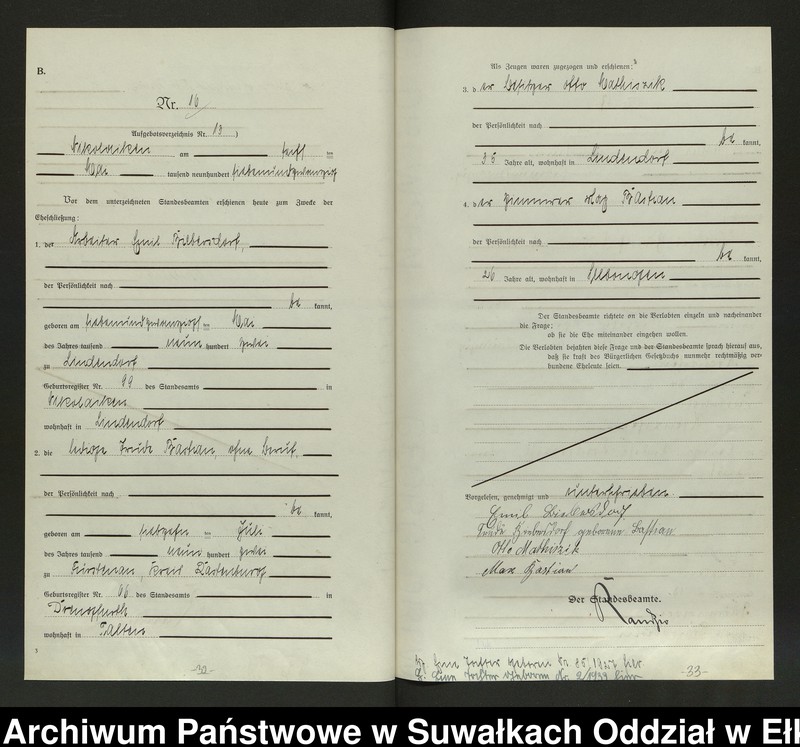 B.
Nr. 16
Aufgebotsverzeichnis Nr. 13 )
Nikolaiken am elf ten
Mai tausend neunhundert siebenundzwanzig
Vor dem unterzeichneten Standesbeamten erschienen heute zum Zwecke der
Eheschließung:
1. der Arbeiter Emil
der Persönlichkeit nach
be kannt,
geboren am siebenundzwanzigsten Mai
des Jahres tausend neun hundert zwei
zu Lindendorf
Geburtsregister Nr. 99 des Standesamts in
Nikolaiken
wohnhaft in Lindendorf
2. die ledige Trude Bastian, ohne Beruf,
der Persönlichkeit nach
be kannt,
geboren am siebzehn ten Juli
des Jahres tausend neun hundert zwei
zu Fürstenau, Kreis Rastenburg
Geburtsregister Nr. 66 des Standesamts in
Drengfurth
wohnhaft in Talten
3
-32-
Als Zeugen waren zugezogen und erschienen:
3. der Besitzer Otto Mathiszik
der Persönlichkeit nach
be kannt,
Jahre alt, wohnhaft in Lindendorf
4. der Zimmerer Max Bastian
der Persönlichkeit nach
be kannt,
26 Jahre alt, wohnhaft in
Der Standesbeamte richtete an die Verlobten einzeln und nacheinander
die Frage:
ob sie die Ehe miteinander eingehen wollen.
Die Verlobten bejahten diese Frage und der Standesbeamte sprach hierauf aus,
daß sie kraft des Bürgerlichen Gesetzbuchs nunmehr rechtmäßig ver-
bundene Eheleute seien.
Vorgelesen, genehmigt und unterschrieben
Emil
geborene Bastian
Otto Mathiszik
Max Bastian
Der Standesbeamte.
Eine Tochter geboren Nr. 1927 hier
Eine Tochter geboren Nr. 2/1933 hier
-33-
Archiwum Państwowe w Suwałkach Oddział w Ełk